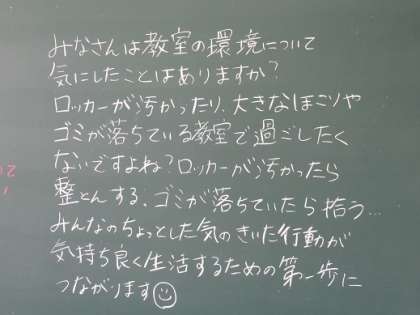 みなさんは教室の環境について
気にしたことはありますか？
ロッカーが汚かったり、大きなほこりや
ゴミが落ちている教室で過ごしたく
ないですよね？ロッカーが汚かったら
整とんする、ゴミが落ちていたら拾う…
みんなのちょっとした気のきいた行動が
気持ち良く生活するための第一歩に
つながります☺